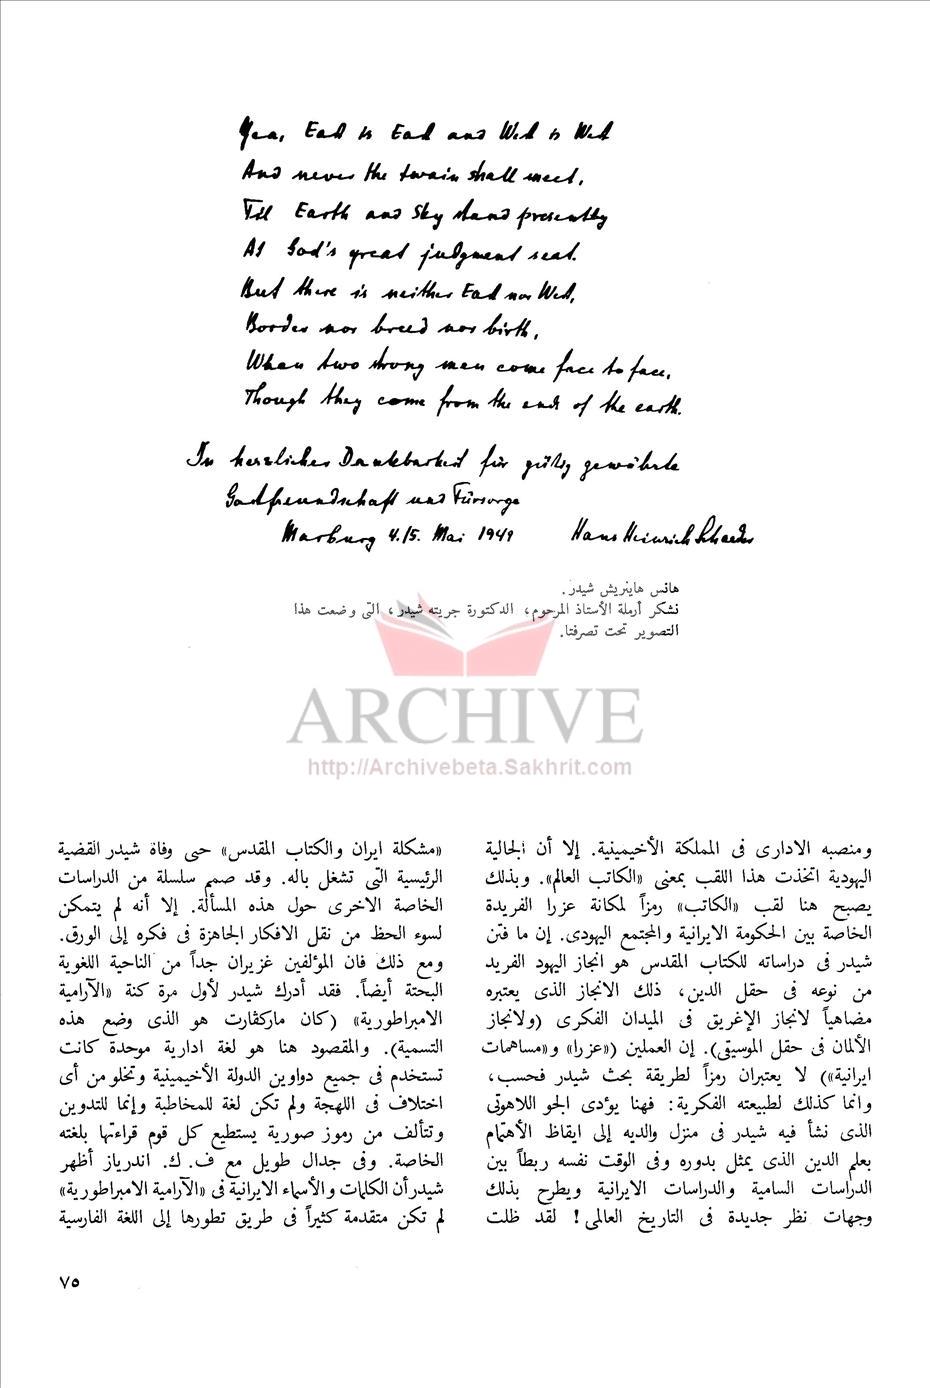 Yea, East is East and West is West
And never the twain shall meet,
Till Earth and Sky stand presently
At God's great judgment seat.
But there is neither East nor West,
Border nor breed nor birth,
When two strong men come face to face,
Though they come from the ends of the earth.
In herzlicher Dankbarkeit für gütig gewährte
Gastfreundschaft und Fürsorge
Marburg 4./5. Mai 1949 Hans Heinrich Schaeder
هانس هاينريش شيدر.
نشكر أرملة الأستاذ المرحوم، الدكتورة جريته شيدر، التى وضعت هذا
التصوير تحت تصرفتا.
ARCHIVE
http://Archivebeta.Sakhrit.com
ومنصبه الادارى فى المملكة الأخيمينية. إلا أن الجالية
اليهودية اتخذت هذا اللقب بمعنى «الكاتب العالم». وبذلك
يصبح هنا لقب «الكاتب» رمزاً لمكانة عزرا الفريدة
الخاصة بين الحكومة الايرانية والمجتمع اليهودى. إن ما فتن
شيدر فى دراساته للكتاب المقدس هو انجاز اليهود الفريد
من نوعه فى حقل الدين، ذلك الانجاز الذى يعتبره
مضاهياً لانجاز الإغريق فى الميدان الفكرى (ولانجاز
الألمان فى حقل الموسيقى). إن العملين («عزرا» و«مساهمات
ايرانية») لا يعتبران رمزاً لطريقة بحث شيدر فحسب،
وانما كذلك لطبيعته الفكرية: فهنا يؤدى الجو اللاهوتى
الذى نشأ فيه شيدر فى منزل والديه إلى ايقاظ الأهتمام
بعلم الدين الذى يمثل بدوره وفى الوقت نفسه ربطاً بين
الدراسات السامية والدراسات الايرانية ويطرح بذلك
وجهات نظر جديدة فى التاريخ العالمى! لقد ظلت
«مشكلة ايران والكتاب المقدس» حتى وفاة شيدر القضية
الرئيسية التى تشغل باله. وقد صمم سلسلة من الدراسات
الخاصة الاخرى حول هذه المسألة. إلا أنه لم يتمكن
لسوء الحظ من نقل الافكار الجاهزة فى فكره إلى الورق.
ومع ذلك فان المؤلفين غزيران جداً من الناحية اللغوية
البحتة أيضاً. فقد أدرك شيدر لأول مرة كنة «الآرامية
الامبراطورية» (كان ماركڤارت هو الذى وضع هذه
التسمية). والمقصود هنا هو لغة ادارية موحدة كانت
تستخدم فى جميع دواوين الدولة الأخيمينية وتخلو من أى
اختلاف فى اللهجة ولم تكن لغة للمخاطبة وإنما للتدوين
وتتألف من رموز صورية يستطيع كل قوم قراءتها بلغته
الخاصة. وفى جدال طويل مع ف. ك. اندرياز أظهر
شيدر أن الكلمات والأسماء الايرانية فى «الآرامية الامبراطورية»
لم تكن متقدمة كثيراً فى طريق تطورها إلى اللغة الفارسية
٧٥